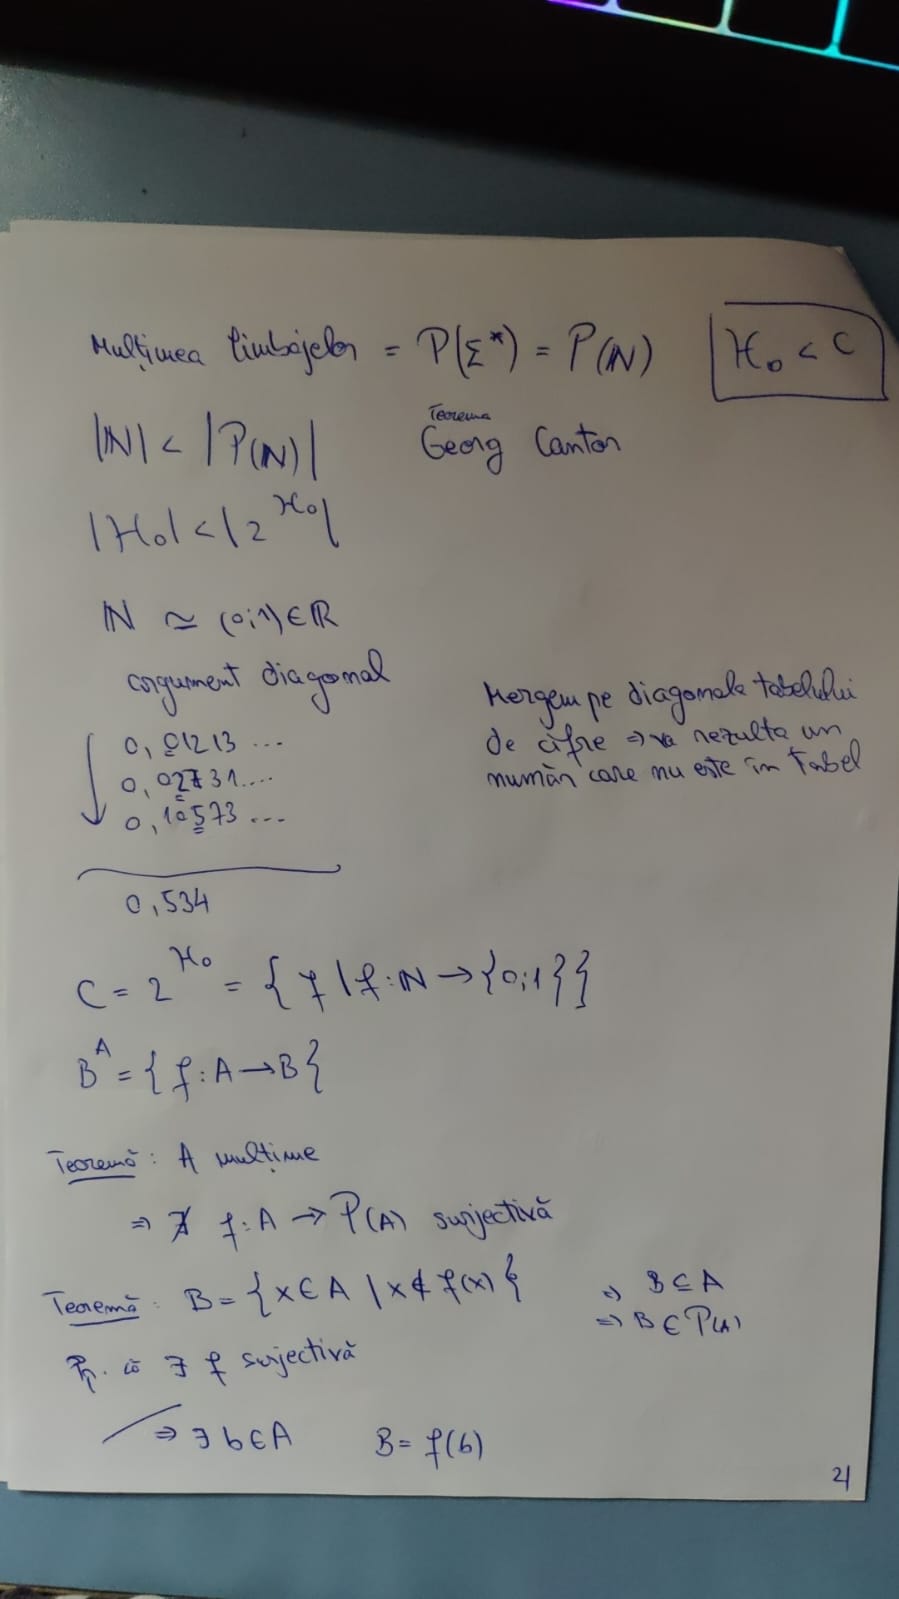 Mulțimea limbajelor = P(Σ*) = P(ℕ)
ℵ₀ < C
|ℕ| < |P(ℕ)|
Teorema
Georg Cantor
|ℵ₀| < |2^ℵ₀|
ℕ ≃ (0;1) ∈ ℝ
argument diagonal
0,01213 ...
0,02731....
0,10573 ...
Mergem pe diagonala tabelului
de cifre ⇒ va rezulta un
număr care nu este în tabel
0,534
C = 2^ℵ₀ = { f | f: ℕ → {0;1}}
B^A = { f: A → B}
Teoremă: A mulțime
⇒ ∄ f: A → P(A) surjectivă
Teoremă: B = {x ∈ A | x ∉ f(x)}
⇒ B ⊆ A
⇒ B ∈ P(A)
Pp. că ∃ f surjectivă
⇒ ∃ b ∈ A B = f(b)
2|